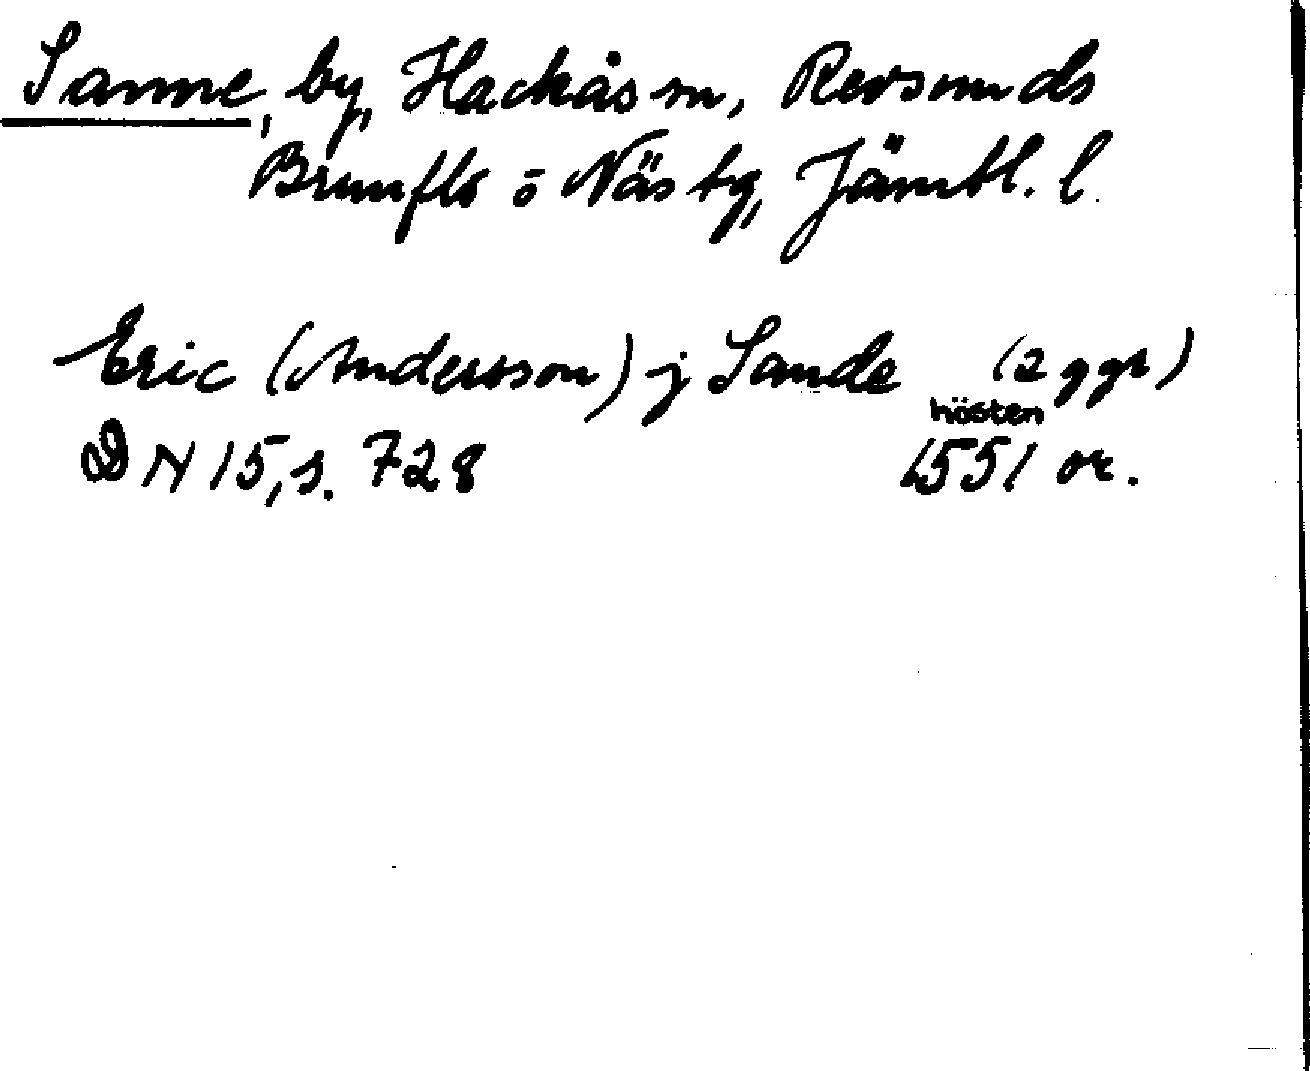 Sanne, by, Hackås sn, Revsunds
Brunflo o Näs tg, Jämtl. l.
Eric (Andersson) j Sande (2 ggr)
hösten
DN 15, s. 728 1551 or.